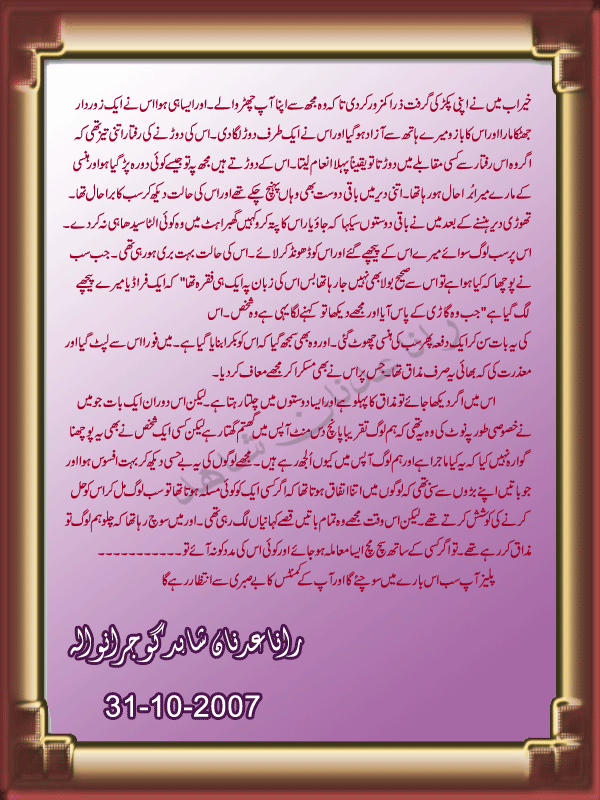 خیر اب میں نے اپنی پکڑ کی گرفت ذرا کمزور کر دی تاکہ وہ مجھ سے اپنا آپ چھڑوا لے۔ اور ایسا ہی ہوا اس نے ایک زور دار
جھٹکا مارا اور اس کا بازو میرے ہاتھ سے آزاد ہو گیا اور اس نے ایک طرف دوڑ لگا دی۔ اس کی دوڑنے کی رفتار اتنی تیز تھی کہ
اگر وہ اس رفتار سے کسی مقابلے میں دوڑتا تو یقیناً پہلا انعام لیتا۔ اس کے دوڑتے ہیں مجھ پہ تو جیسے کوئی دورہ پڑ گیا ہو اور ہنسی
کے مارے میرا بُرا حال ہو رہا تھا۔ اتنی دیر میں باقی دوست بھی وہاں پہنچ چکے تھے اور اس کی حالت دیکھ کر سب کا برا حال تھا۔
تھوڑی دیر ہنسنے کے بعد میں نے باقی دوستوں سے کہا کہ جاؤ یار اس کا پتہ کرو کہیں گھبراہٹ میں وہ کوئی الٹا سیدھا ہی نہ کر دے۔
اس پر سب لوگ سوائے میرے اس کے پیچھے گئے اور اس کو ڈھونڈ کر لائے۔ اس کی حالت بہت بری ہو رہی تھی۔ جب سب
نے پوچھا کہ کیا ہوا ہے تو اس سے صحیح بولا بھی نہیں جا رہا تھا بس اس کی زبان پہ ایک ہی فقرہ تھا" کہ ایک فراڈیا میرے پیچھے
لگ گیا ہے" جب وہ گاڑی کے پاس آیا اور مجھے دیکھا تو کہنے لگا یہی ہے وہ شخص۔ اس
کی یہ بات سن کر ایک دفعہ پھر سب کی ہنسی چھوٹ گئی۔ اور وہ بھی سمجھ گیا کہ اس کو بکرا بنایا گیا ہے۔ میں فوراً اس سے لپٹ گیا اور
معذرت کی کہ بھائی یہ صرف مذاق تھا۔ جس پر اس نے بھی مسکرا کر مجھے معاف کر دیا۔
اس میں اگر دیکھا جائے تو مذاق کا پہلو ہے اور ایسا دوستوں میں چلتا رہتا ہے۔ لیکن اس دوران ایک بات جو میں
نے خصوصی طور پہ نوٹ کی وہ یہ تھی کہ ہم لوگ تقریباً پانچ دس منٹ آپس میں گھتم گھتا رہے لیکن کسی ایک شخص نے بھی یہ پوچھنا
گوارہ نہیں کیا کہ یہ کیا ماجرا ہے اور ہم لوگ آپس میں کیوں اُلجھ رہے ہیں۔ مجھے لوگوں کی یہ بے حسی دیکھ کر بہت افسوس ہوا اور
جو باتیں اپنے بڑوں سے سنی تھی کہ لوگوں میں اتنا اتفاق ہوتا تھا کہ اگر کسی ایک کو کوئی مسئلہ ہوتا تھا تو سب لوگ مل کر اس کو حل
کرنے کی کوشش کرتے تھے۔ لیکن اس وقت مجھے وہ تمام باتیں قصے کہانیاں لگ رہی تھی۔ اور میں سوچ رہا تھا کہ چلو ہم لوگ تو
مذاق کر رہے تھے۔ تو اگر کسی کے ساتھ سچ مچ ایسا معاملہ ہو جائے اور کوئی اس کی مدد کو نہ آئے تو۔۔۔۔۔۔۔۔۔۔۔
پلیز آپ سب اس بارے میں سوچئے گا اور آپ کے کمنٹس کا بے صبری سے انتظار رہے گا
رانا عدنان شاہد گوجرانوالہ
31-10-2007
رانا عدنان شاہد